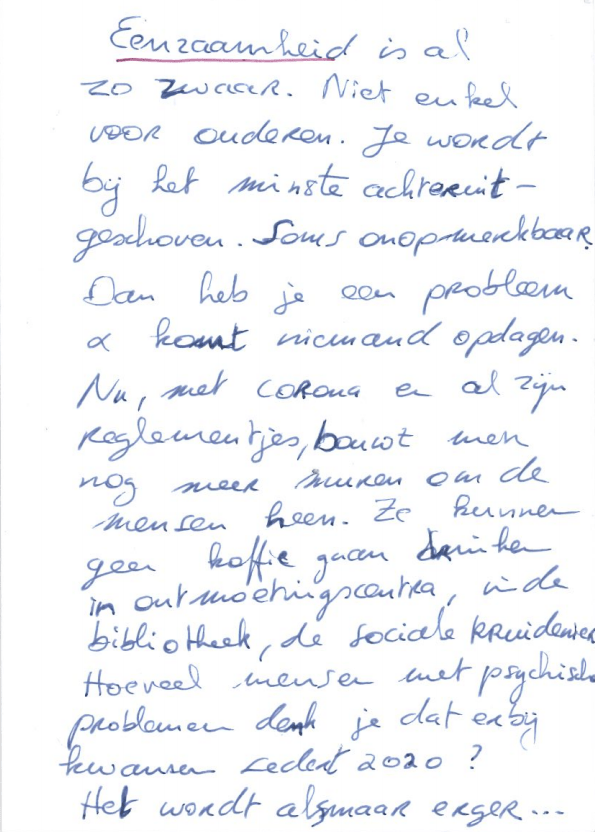 Eenzaamheid is al
zo zwaar. Niet enkel
voor ouderen. Je wordt
bij het minste achteruit-
geschoven. Soms onopmerkbaar.
Dan heb je een probleem
& komt niemand opdagen.
Nu, met corona en al zijn
reglementjes, bouwt men
nog meer muren om de
mensen heen. Ze kunnen
geen koffie gaan drinken
in ontmoetingscentra, in de
bibliotheek, de sociale kruidenier
Hoeveel mensen met psychische
problemen denk je dat erbij
kwamen sedert 2020 ?
Het wordt alsmaar erger...